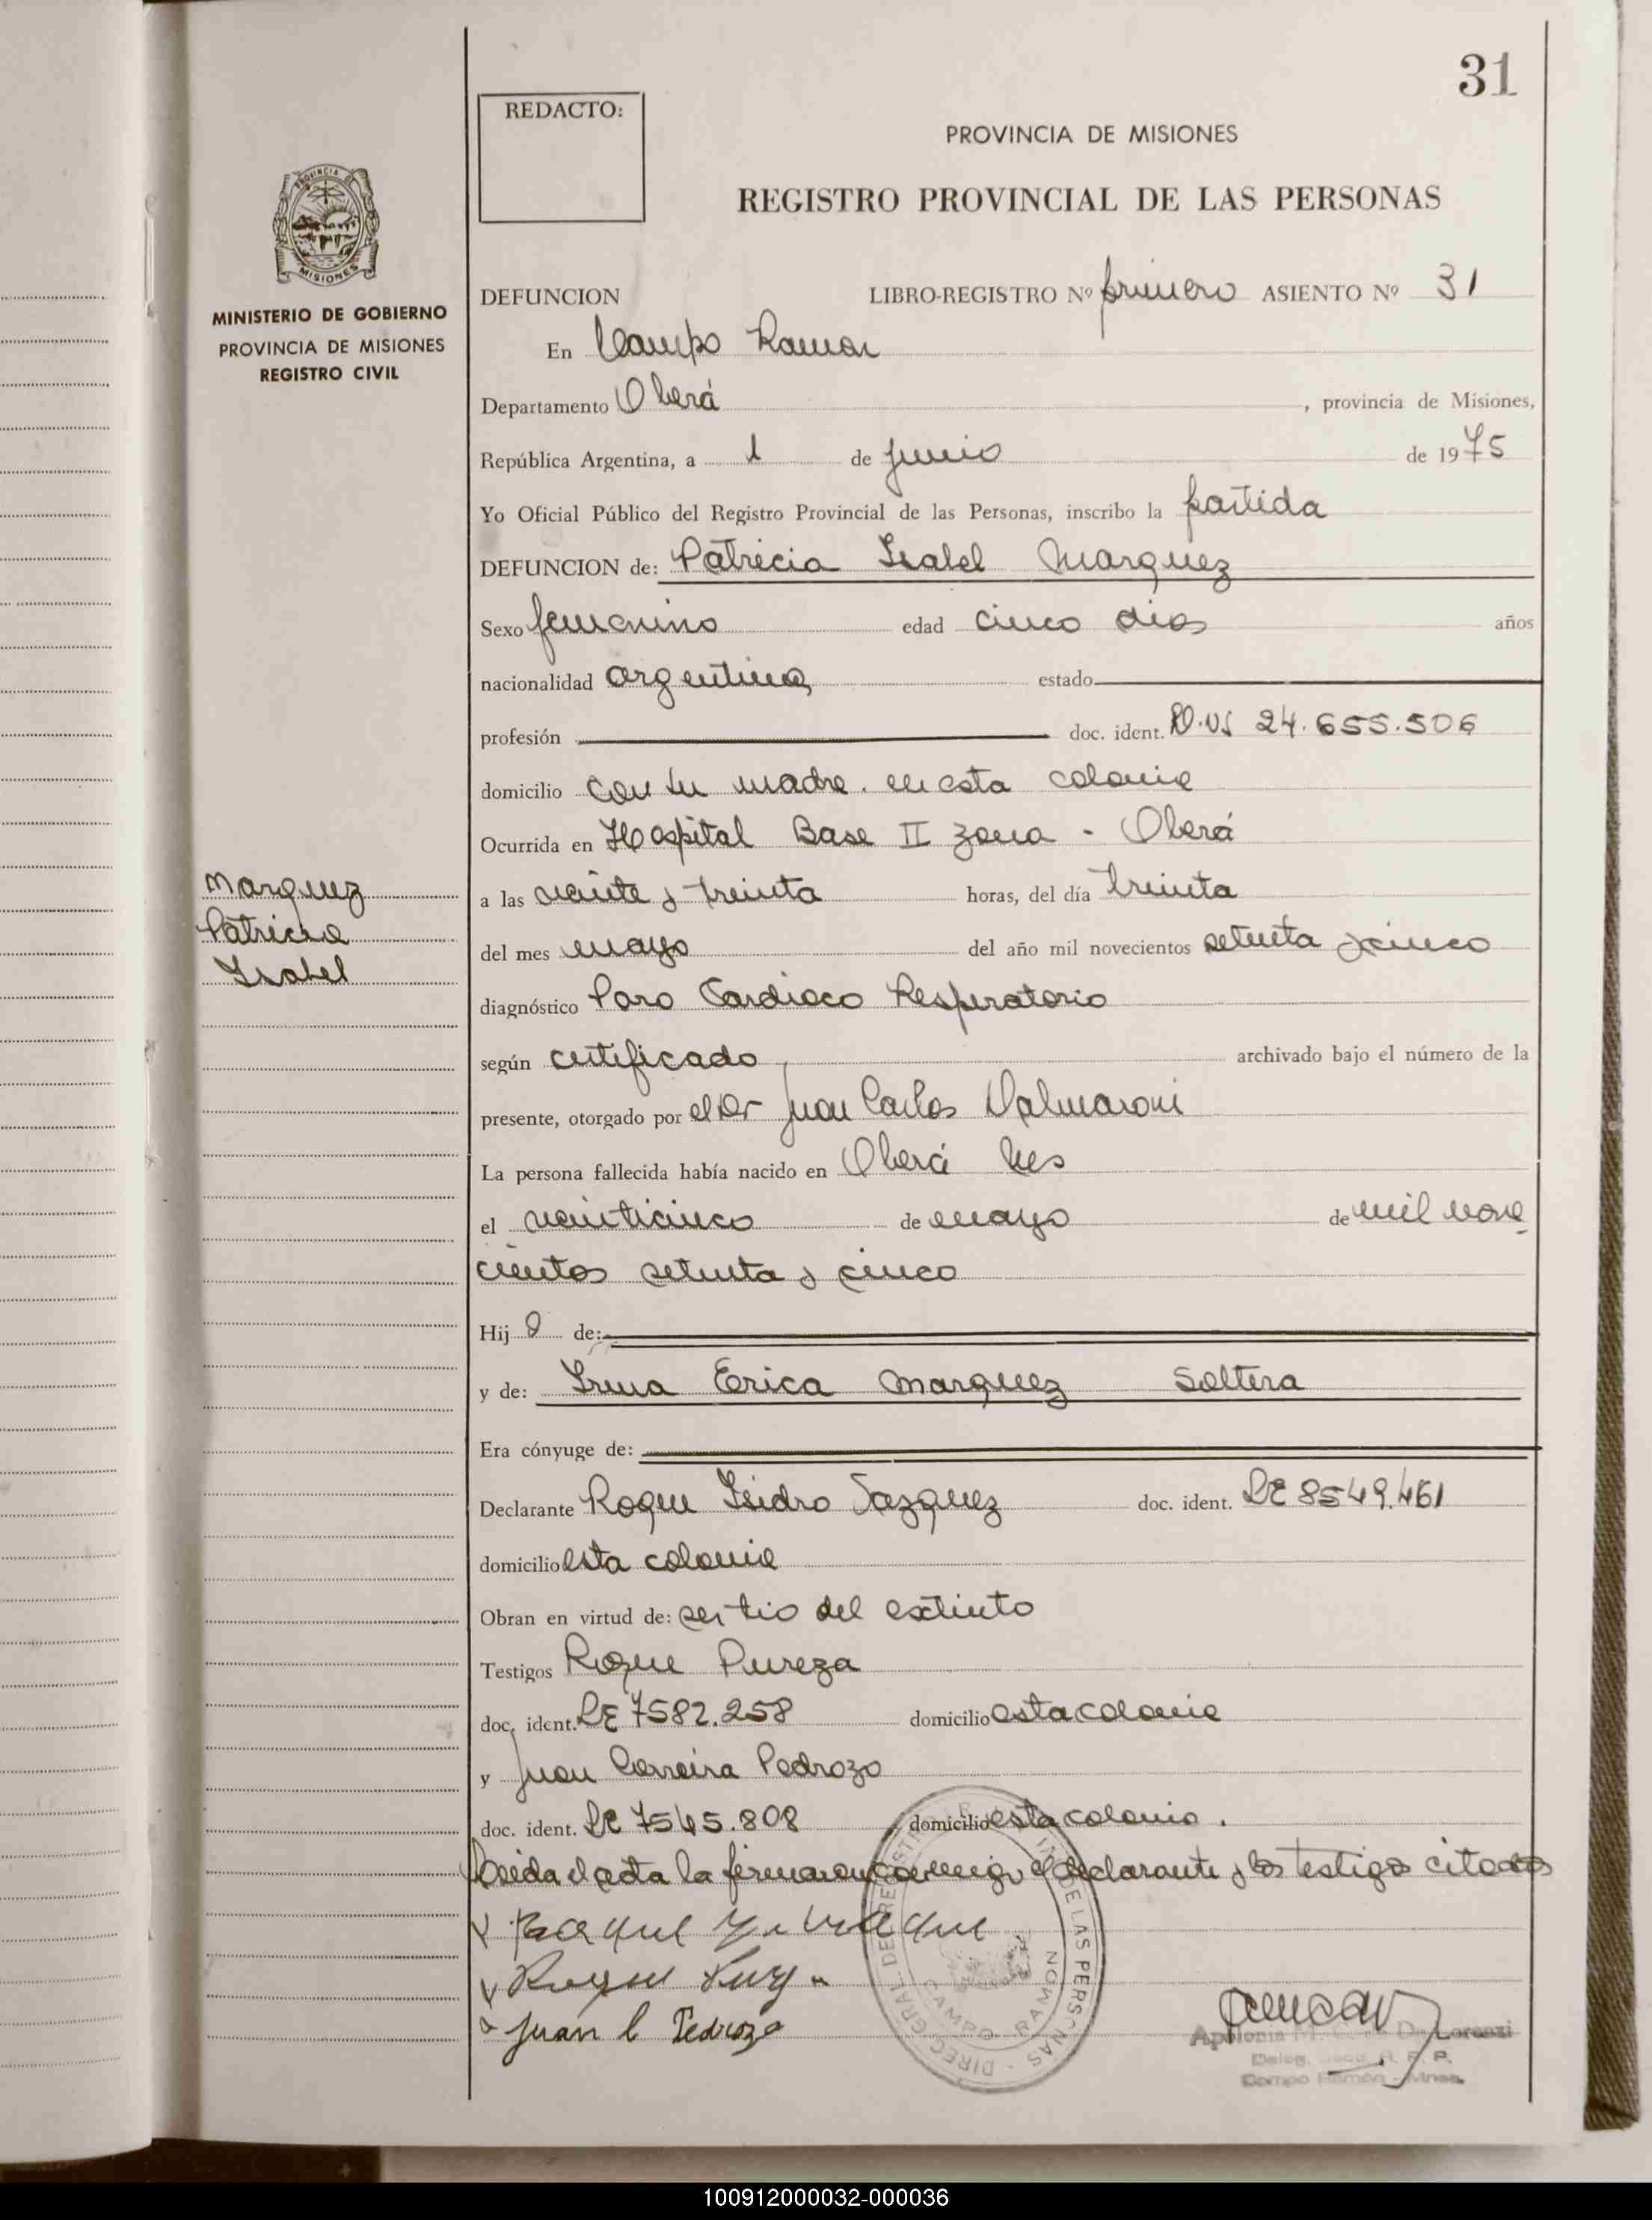 31
REDACTO:
PROVINCIA DE MISIONES
REGISTRO PROVINCIAL DE LAS PERSONAS
PROVINCIA DE
MISIONES
MINISTERIO DE GOBIERNO
PROVINCIA DE MISIONES
REGISTRO CIVIL
DEFUNCION LIBRO-REGISTRO Nº primero ASIENTO Nº 31
En Campo Ramon
Departamento Oberá, provincia de Misiones,
República Argentina, a 1 de junio de 1975
Yo Oficial Público del Registro Provincial de las Personas, inscribo la partida
DEFUNCION de: Patricia Isabel Marquez
Sexo femenino edad cinco dias años
nacionalidad argentina estado
profesión doc. ident. 24.655.506
domicilio con su madre. en esta colonia
Ocurrida en Hospital Base II zona - Oberá
a las veinte y treinta horas, del día treinta
Marquez
Patricia
Isabel
del mes mayo del año mil novecientos setenta y cinco
diagnóstico Paro Cardiaco Respiratorio
según certificado archivado bajo el número de la
presente, otorgado por el Dr Juan Carlos Dalmaroni
La persona fallecida había nacido en Oberá
el veinticinco de mayo de mil nove
cientos setenta y cinco
Hij a de:
y de: Irma Erica Marquez Soltera
Era cónyuge de:
Declarante Roque Isidro Vazquez doc. ident. LE 8549.461
domicilio esta colonia
Obran en virtud de: ser tio del extinto
Testigos Roque Pureza
doc. ident. LE 7582.258 domicilio esta colonia
y Juan Carreira Pedrozo
doc. ident. LE 7545.808 domicilio esta colonia.
Leida el acta la firmaron conmigo el declarante y los testigos citados
Juan C Pedrozo
DIREC. GRAL. DE REGISTRO DE LAS PERSONAS
CAMPO RAMON
Lorenzi
Campo Ramón - Mnes.
100912000032-000036